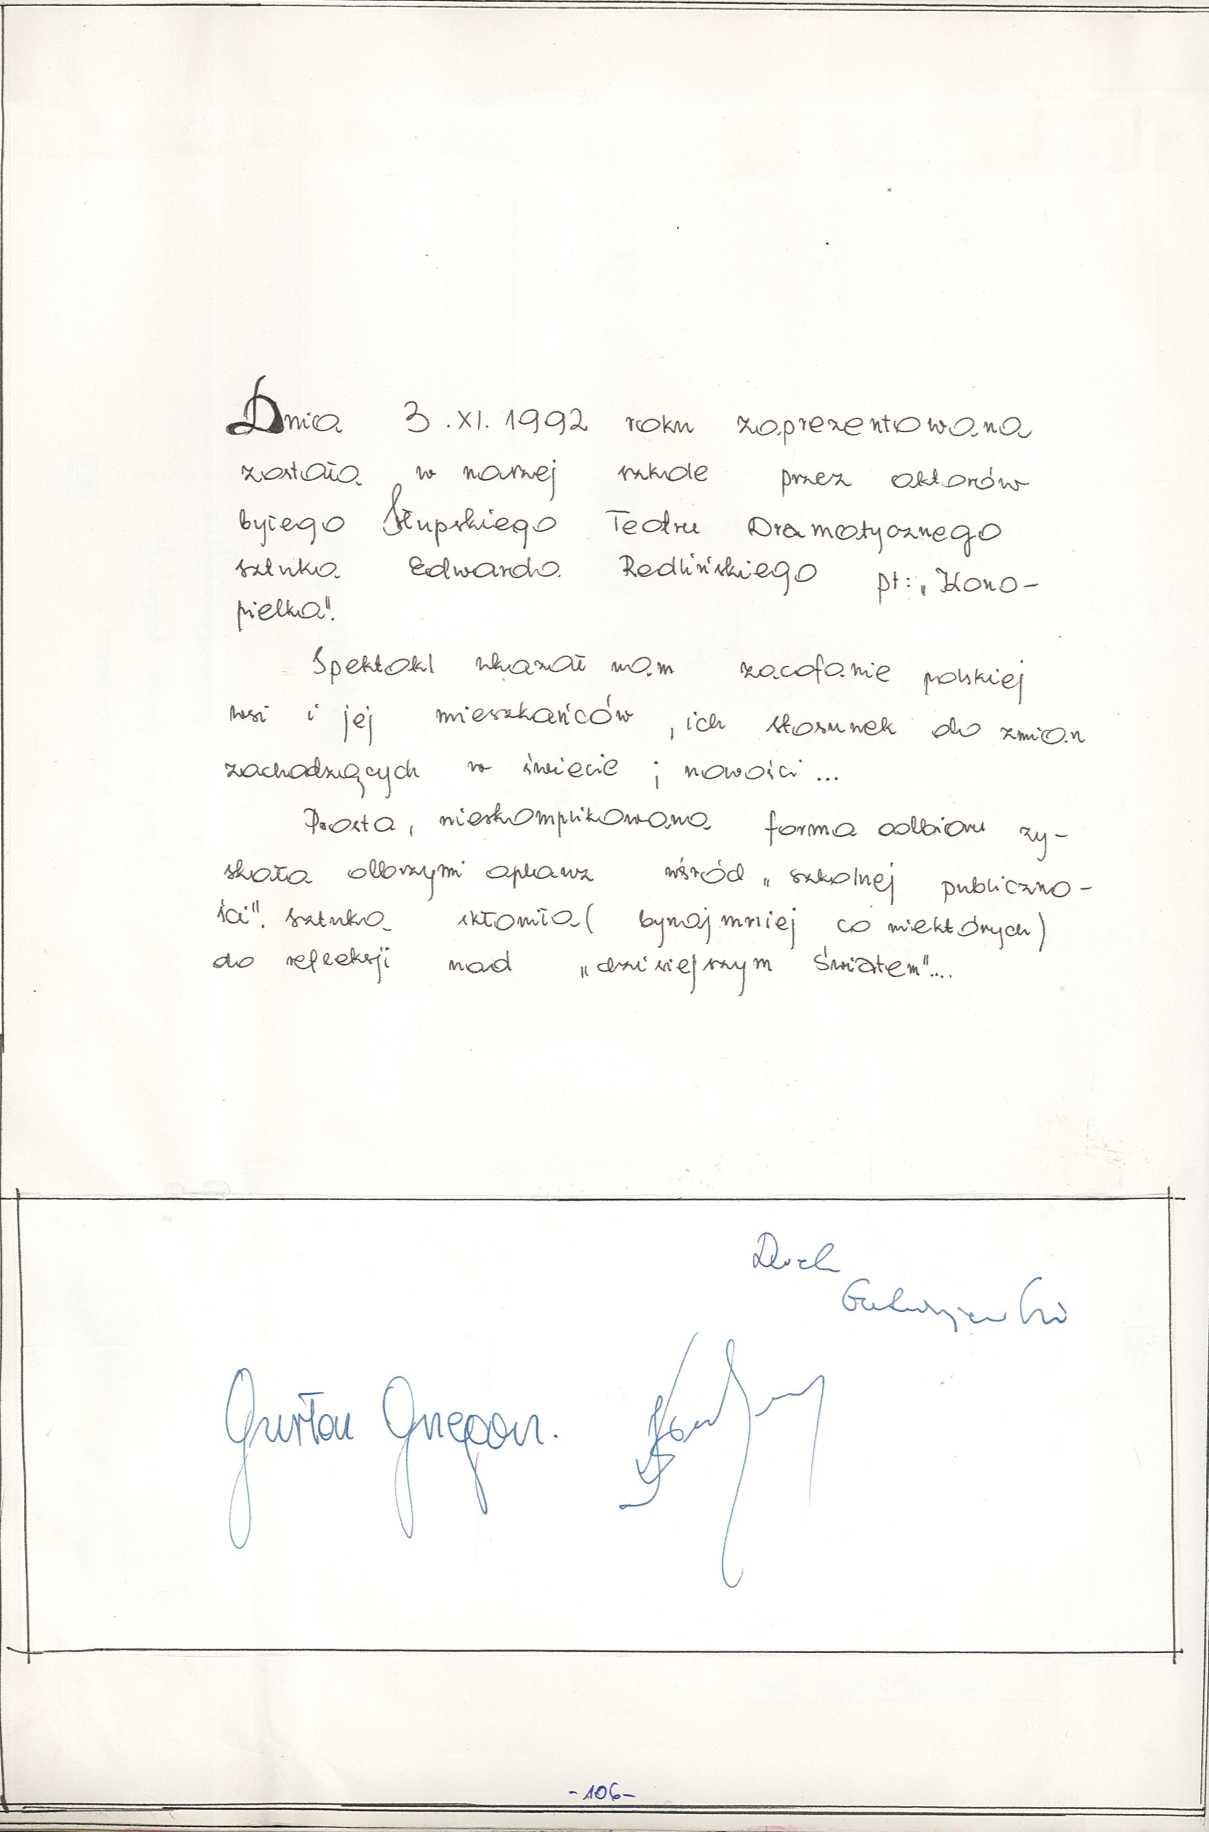 Dnia 3.XI.1992 roku zaprezentowana
została w naszej szkole przez aktorów
byłego Słupskiego Teatru Dramatycznego
sztuka Edwarda Redlińskiego pt: „Kono-
pielka".
Spektakl wkazał nam zacofanie polskiej
wsi i jej mieszkańców, ich stosunek do zmian
zachodzących w świecie i nowości...
Prosta, nieskomplikowana forma odbioru zy-
skała olbrzymi aplauz wśród „szkolnej publiczno-
ści". Sztuka skłoniła (bynajmniej co niektórych)
do refleksji nad „dzisiejszym światem"....
Gustaw
-106-